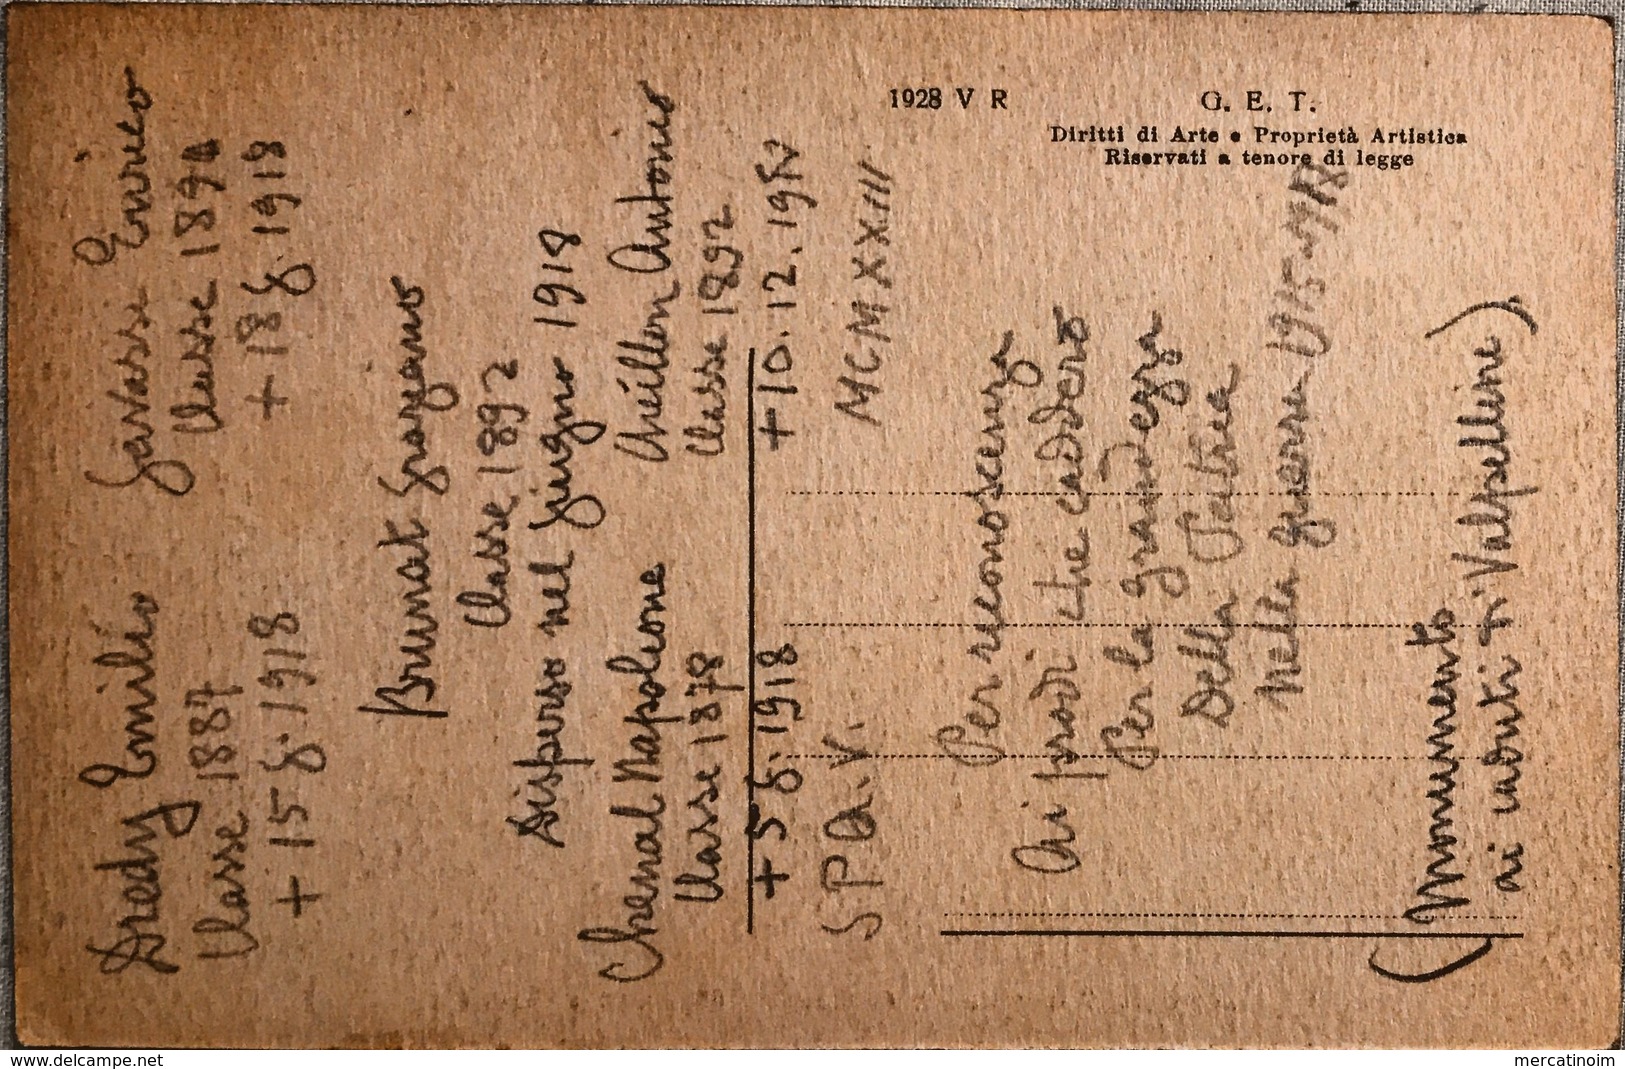 1928 V R
G. E. T.
Diritti di Arte e Proprietà Artistica
Riservati a tenore di legge
Dredy Emilio
Classe 1887
+ 15.8.1918
Gavassi Enrico
Classe 1894
+ 18 8.1918
Brunat Graziano
Classe 1892
Disperso nel Giugno 1918
Chenal Napoleone
Classe 1878
+ 5 8.1918
Créillon Antonio
Classe 1892
+ 10.12.
S.P.Q.V.
MCMXXIII
Per riconoscenza
Ai prodi che caddero
Per la grandezza
Della Patria
nella guerra 1915-1918
(Monumento
ai caduti di Valpelline)
www.delcampe.net
mercatinoim